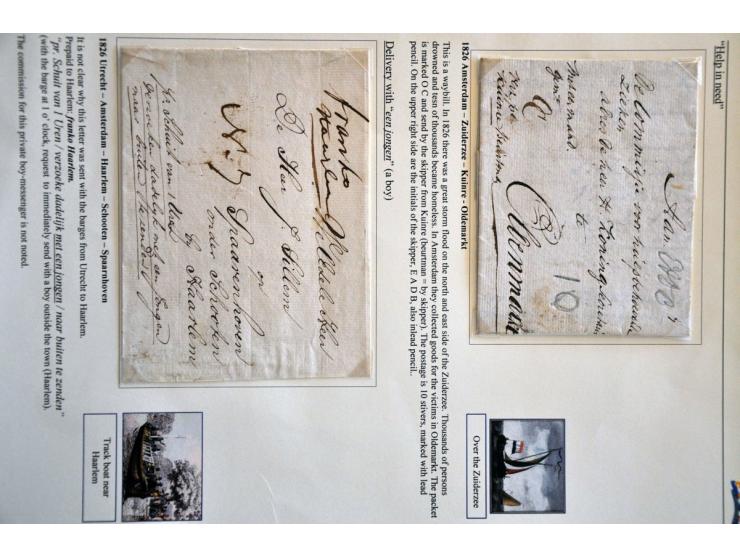 "Help in need"
Aan
De Commissie voor
Zieken
te
10
Oldenmarkt
1826 Amsterdam – Zuiderzee – Kuinre - Oldemarkt
Over the Zuiderzee
This is a waybill. In 1826 there was a great storm flood on the north and east side of the Zuiderzee. Thousands of persons
drowned and tesn of thousands became homeless. In Amsterdam they collected goods for the victims in Oldemarkt. The packet
is marked O C and send by the skipper from Kuinre (beurtman = by skipper). The postage is 10 stivers, marked with lead
pencil. On the upper right side are the initials of the skipper, E A D B, also inlead pencil..
Delivery with "een jongen" (a boy)
franko
Haarlem
De Heer J. Sillem
op
Spaarenhoven
onder Schooten
bij Haarlem
1826 Utrecht – Amsterdam – Haarlem – Schooten – Spaarnhoven
Track boat near
Haarlem
It is not clear why this letter was sent with the barges from Utrecht to Haarlem.
Prepaid to Haarlem: franko Haerlem.
"pr. Schuit van 1 Uren / verzoeke dadelijk met een jongen / naar buiten te zenden"
(with the barge at 1 o' clock, request to immediately send with a boy outside the town (Haarlem).
The commission for this private boy-messenger is not noted.